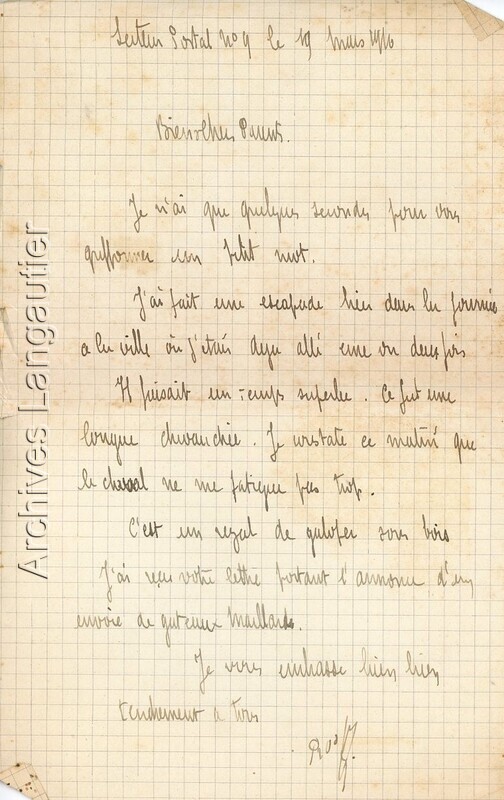 Secteur Postal No 9 le 19 mars 1916
Bien chers Parents.
Je n'ai que quelques secondes pour vous
griffonner un petit mot.
J'ai fait une escapade hier dans la journée
a la ville où j'étais deja allé une ou deux fois
Il faisait un temps superbe. Ce fut une
longue chevauchée. Je constate ce matin que
le cheval ne me fatigue pas trop.
C'est un regal de galoper sous bois
J'ai reçu votre lettre portant l'annonce d'un
envoie de gateaux Maillard.
Je vous embrasse bien bien
tendrement a tous
Archives Langautier